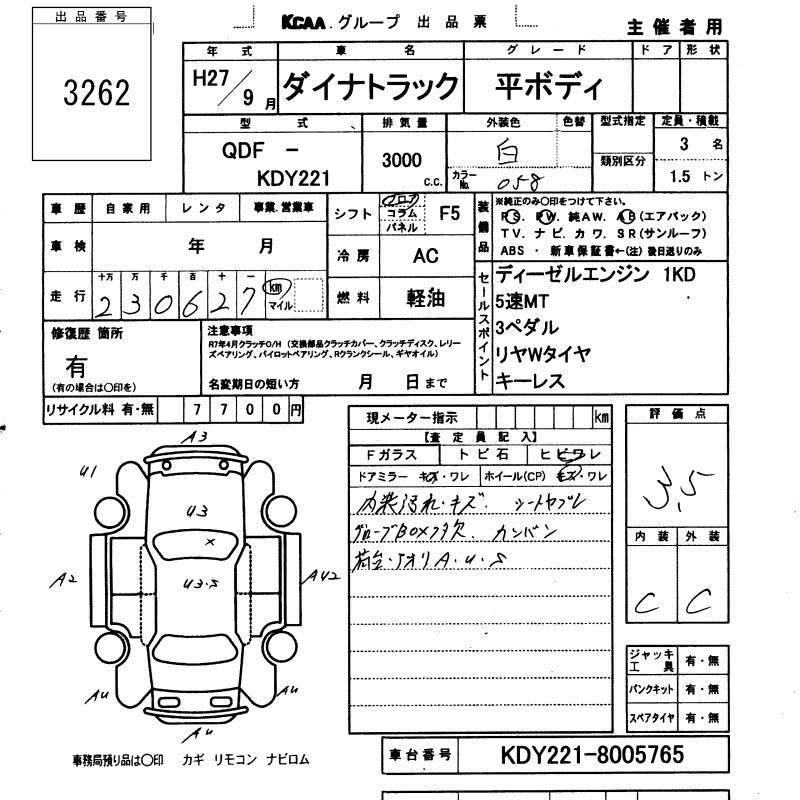 出品番号
3262
KCAA.グループ 出品票
主催者用
年式 車名 グレード ドア 形状
H27/9月 ダイナトラック 平ボディ
型式 排気量 外装色 色替 型式指定 定員・積載
QDF - KDY221 3000 c.c. 白 カラーNo. 058 類別区分 3 名 1.5 トン
車歴 自家用 レンタ 事業、営業車
車検 年 月
走行 十万 万 千 百 十 一
230627 km マイル
シフト フロア コラム パネル F5
冷房 AC
燃料 軽油
装備品
※純正のみ〇印をつけて下さい。
PS. PW. 純AW. AB(エアバック)
TV. ナビ. カワ. SR(サンルーフ)
ABS ・ 新車保証書←(注) 後日送りのみ
セールスポイント
ディーゼルエンジン 1KD
5速MT
3ペダル
リヤWタイヤ
キーレス
修復歴 箇所
有
(有の場合は〇印を)
注意事項
R7年4月クラッチO/H (交換部品クラッチカバー、クラッチディスク、レリーズベアリング、パイロットベアリング、Rクランクシール、ギヤオイル)
名変期日の短い方 月 日まで
リサイクル料 有・無 7700円
現メーター指示 km
【査定員記入】
Fガラス トビ石 ヒビワレ
ドアミラー キズ・ワレ ホイール(CP) キズ・ワレ
内装汚れ・キズ. シートヤブレ
グローブBOXフタ欠. カンバン
荷台・アオリ A・U・S
評価点
3.5
内装 外装
C C
ジャッキ工具 有・無
パンクキット 有・無
スペアタイヤ 有・無
A3
U1
U3
×
U3・S
A2
AU2
AU
AU
AU
事務局預り品は〇印 カギ リモコン ナビロム
車台番号 KDY221-8005765